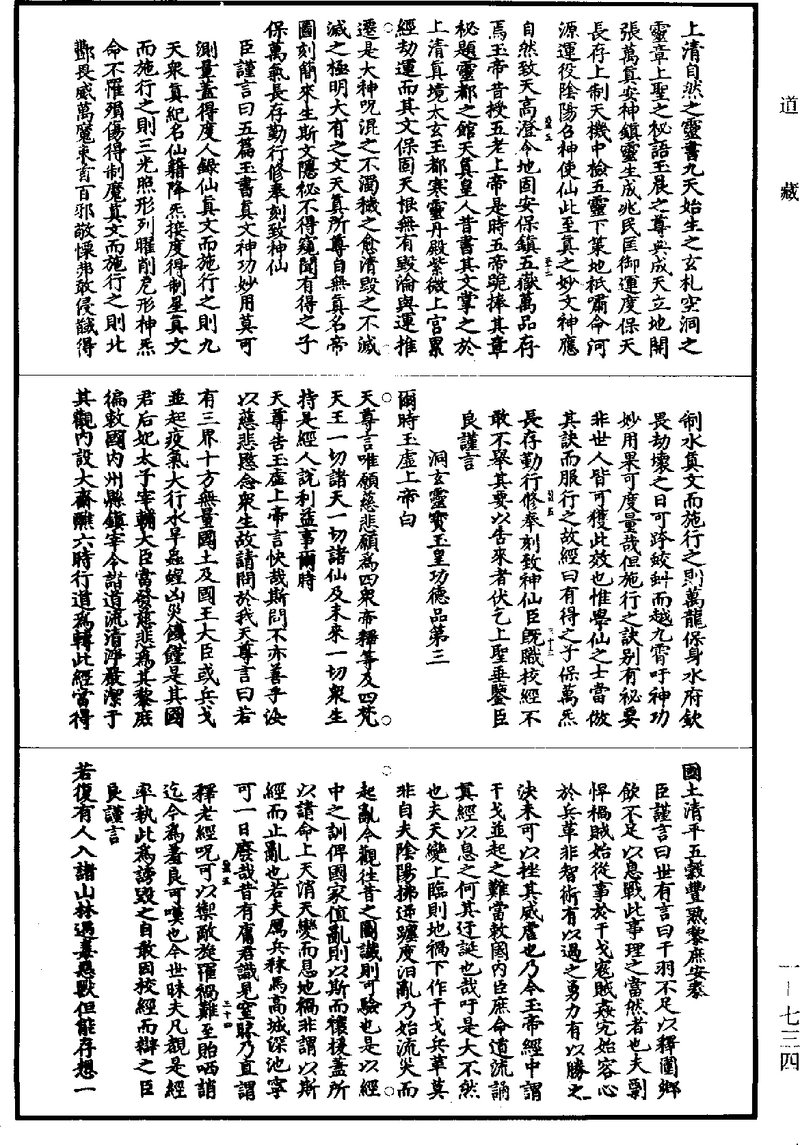 道藏
上清自然之靈書九天始生之玄札空洞之
靈章上聖之秘語玉晨之尊典成天立地開
張萬真安神鎮靈生成兆民匡御運度保天
長存上制天機中檢五靈下策地祇嘯命河
源運役陰陽召神使仙此至真之妙文神應
自然致天高澄令地固安保鎮五嶽萬品存
焉玉帝昔授五老上帝是時五帝跪捧其章
秘題靈都之館天真皇人昔書其文掌之於
上清真境太玄玉都寒靈丹殿紫微上宮累
經劫運而其文保固天根無有毀淪與運推
遷是大神呪混之不濁穢之愈清毀之不滅
滅之極明大有之文天真所尊自無真名帝
圖刻簡來生斯文隱祕不得窺聞有得之子
保萬氣長存勤行修奉刻致神仙
臣謹言曰五篇玉書真文神功妙用莫可
測量蓋得度人錄仙真文而施行之則九
天衆真紀名仙籍降炁接度得制星真文
而施行之則三光照形列曜削尫形神炁
命不罹殞傷得制魔真文而施行之則北
酆畏威萬魔束首百邪敬慄弗敢侵誠得
制水真文而施行之則萬龍保身水府欽
畏劫壞之日可跨蛟虯而越九霄吁神功
妙用果可度量哉但施行之訣别有秘要
非世人皆可獲此效也惟學仙之士當倣
其訣而服行之故經曰有得之子保萬炁
長存勤行修奉刻致神仙臣既職校經不
敢不舉其要以告來者伏乞上聖垂鑒臣
良謹言
洞玄靈寶玉皇功德品第三
爾時玉虛上帝白
天尊言唯願慈悲願爲四衆帝釋等及四梵
天王一切諸天一切諸仙及末來一切衆生
持是經人說利益事爾時
天尊告玉虛上帝言快哉斯問不亦善乎汝
以慈悲愍念衆生故請問於我天尊言曰若
有三界十方無量國土及國王大臣或兵戈
並起疫氣大行水旱蟲蝗凶災饑饉是其國
君后妃太子宰輔大臣當發慈悲爲其黎庶
徧敕國内州縣鎮宰令諸道流清淨嚴潔于
其觀内設大齋醮六時行道爲轉此經當得
國土清平五穀豐熟黎庶安泰
臣謹言曰世有言曰干羽不足以釋圍鄉
飲不足以息戰此事理之當然者也夫剽
悍禍賊始從事於干戈寇賊姦宄始容心
於兵革非智術有以過之勇力有以勝之
決未可以挫其威虐也乃今玉帝經中謂
干戈並起之難當敕國内臣庶命道流誦
其經以息之何其迂誕也哉吁是大不然
也夫天變上臨則地禍下作干戈兵革莫
非自夫陰陽拂逆躔度汨亂乃始流災而
起亂今觀往昔之圖讖則可驗也是以經
中之訓俾國家值亂則以斯而禳檜蓋所
以請命上天消天變而息地禍非謂以斯
經而止亂也若夫厲兵秣馬高城深池寧
可一日廢哉昔有庸君識見窒眛乃直謂
釋老經呪可以禦敵旋罹禍難至貽哂誚
迄今爲羞良可嘆也今世昧夫凡覩是經
率執此爲謗毀之自敢因校經而辯之臣
良謹言
若復有人入諸山林遇毒惡獸但能存想一
一－七三四